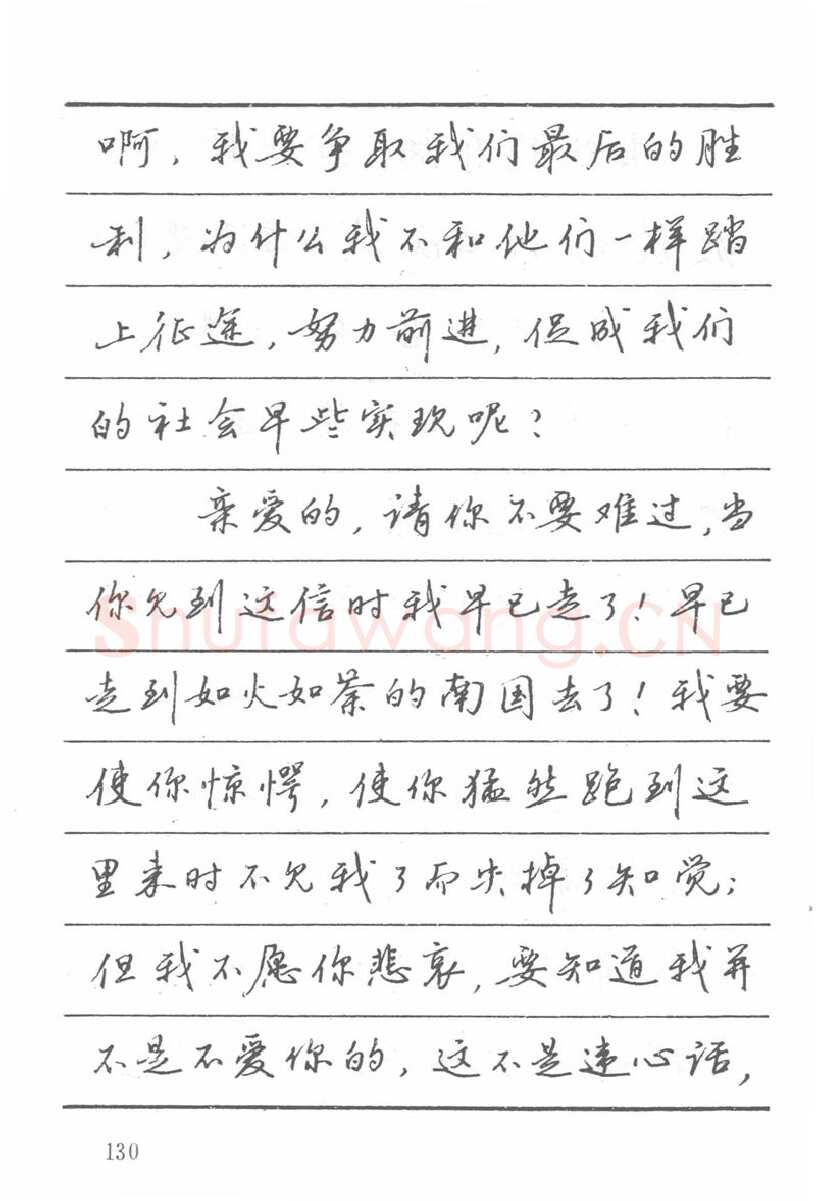 啊，我要争取我们最后的胜
利，为什么我不和他们一样踏
上征途，努力前进，促成我们
的社会早些实现呢？
亲爱的，请你不要难过，当
你见到这信时我早已走了！早已
走到如火如荼的南国去了！我要
使你惊愕，使你猛然跑到这
里来时不见我了而失掉了知觉；
但我不愿你悲哀，要知道我并
不是不爱你的，这不是违心话，
130
Shufawang.CN